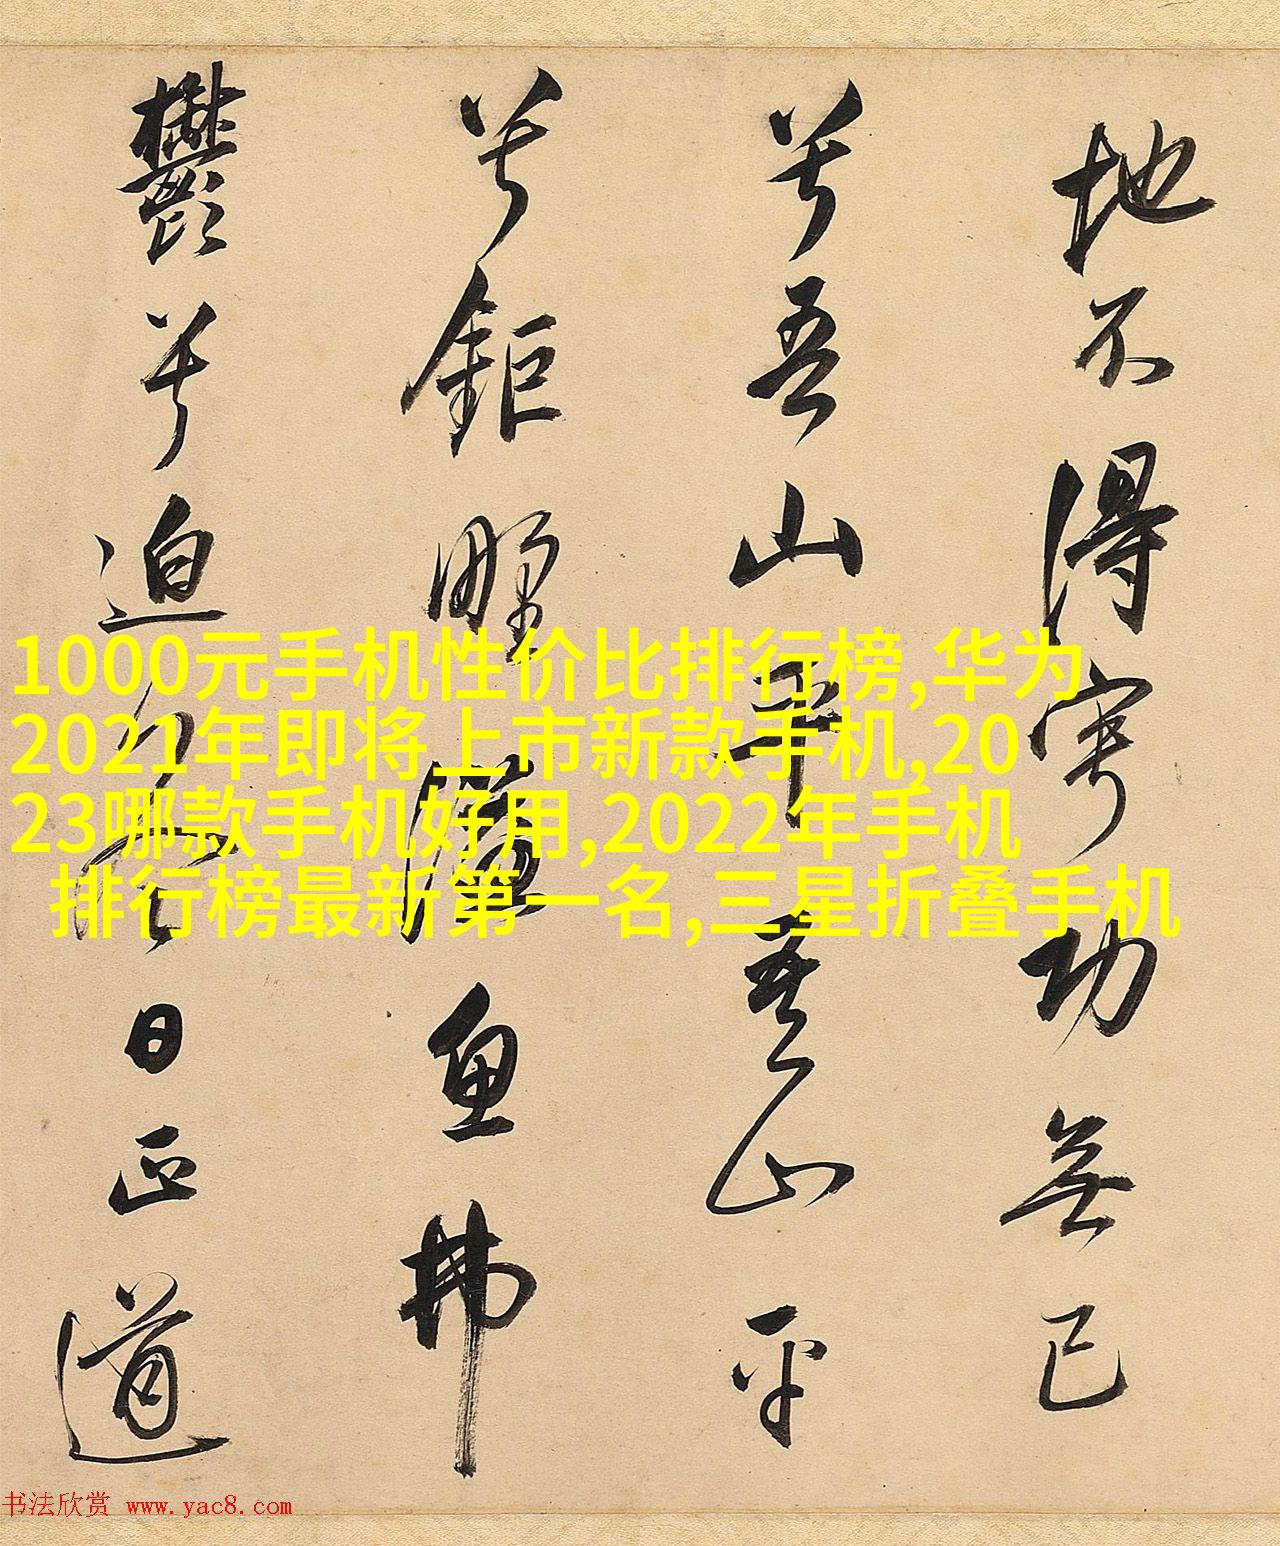 地不得寧功無已
兮吾山平吾山平
兮鉅野溢魚拂
鬱兮迫冬日正道
1000元手机性价比排行榜,华为
2021年即将上市新款手机,20
23哪款手机好用,2022年手机
排行榜最新第一名,三星折叠手机
书法欣赏 www.yac8.com